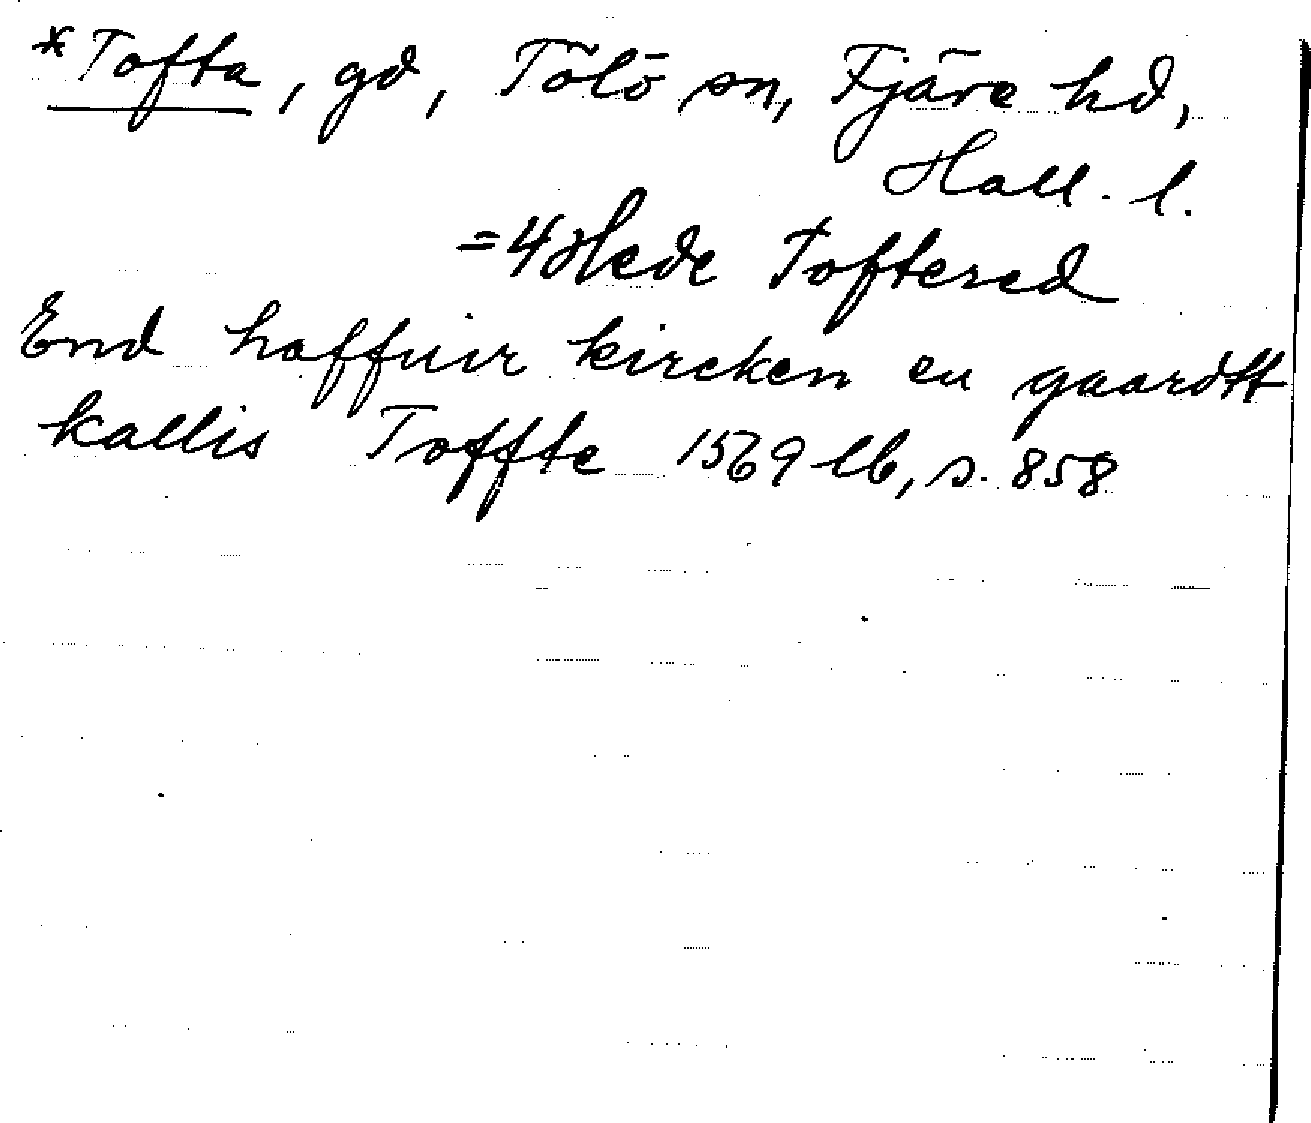 *Tofta, gd, Tölö sn, Fjäre hd,
Hall. l.
=4 Hede Toftered
End haffuir kircken en gaardtt
kallis Toffte 1569 lb, s. 858